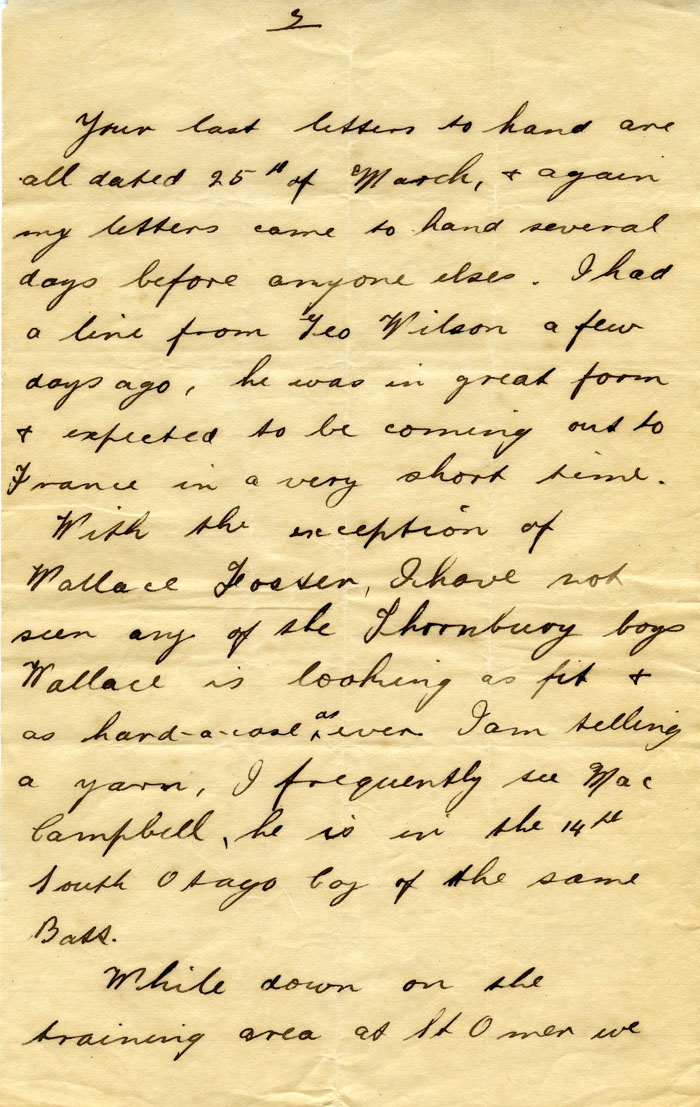 3
Your last letters to hand are
all dated 25th of March, & again
my letters came to hand several
days before anyone elses. I had
a line from Geo Wilson a few
days ago, he was in great form
& expected to be coming out to
France in a very short time.
With the exception of
Wallace Foster, I have not
seen any of the Thornbury boys
Wallace is looking as fit &
as hard-a-case as ever. I am telling
a yarn, I frequently see Mac
Campbell, he is in the 14th
South Otago Coy of the same
Batt.
While down on the
training area at St Omer we